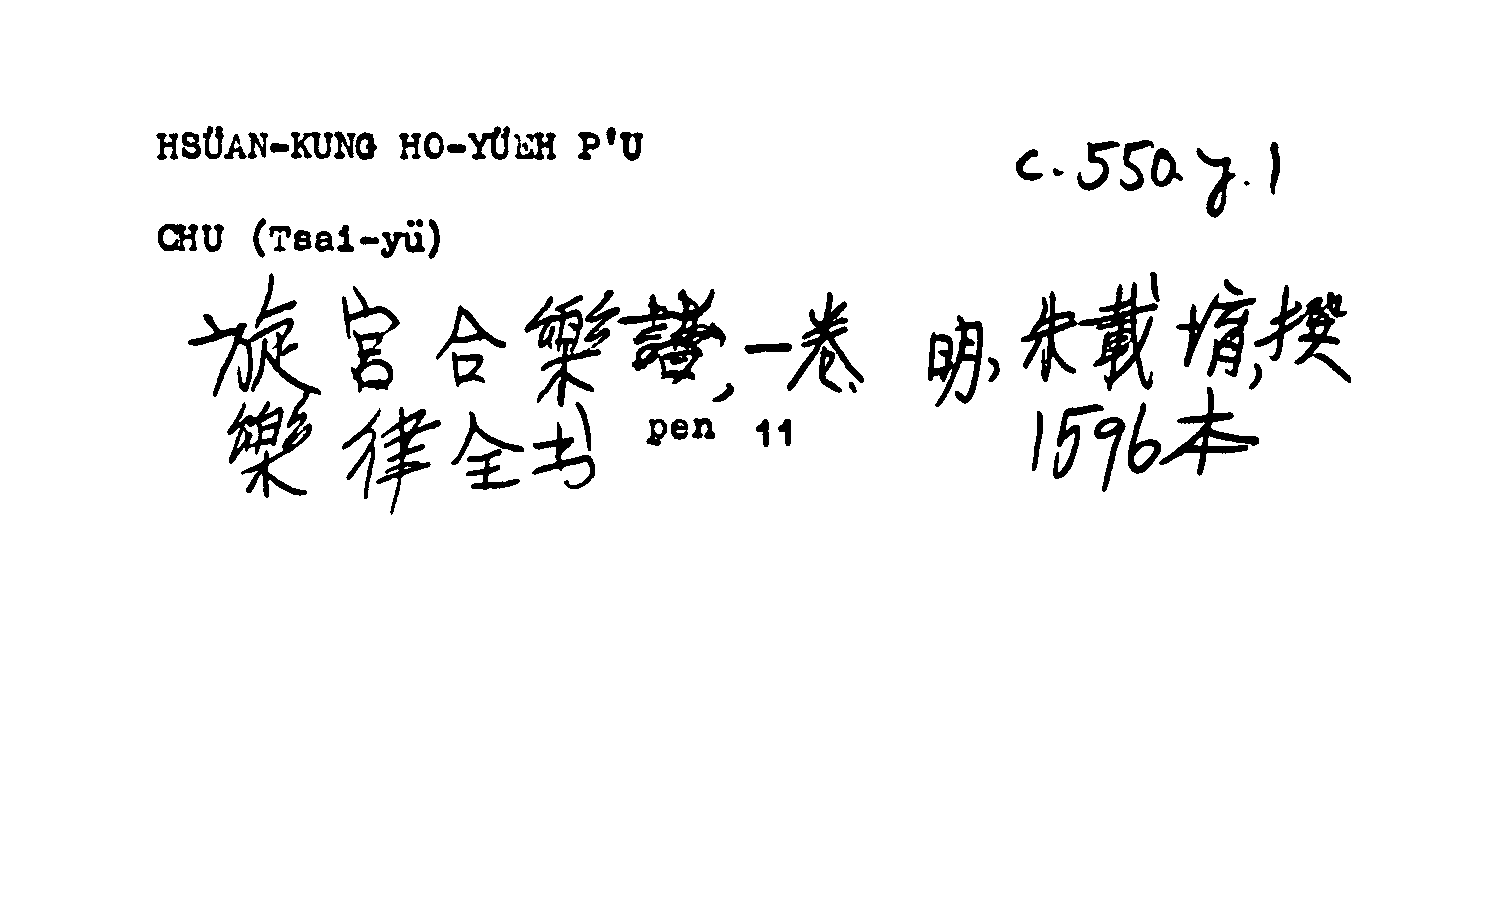 HSÜAN-KUNG HO-YÜEH P'U
c.55a y.1
CHU (Tsai-yü)
旋宮合樂譜,一卷 明,朱載堉,撰
樂律全书 pen 11 1596本